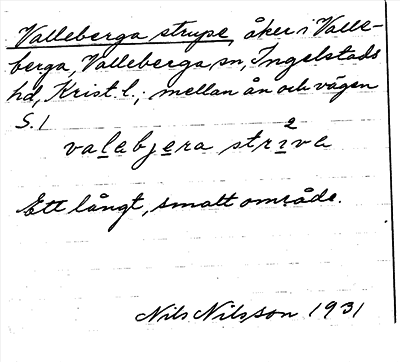 Valleberga strupe, åker i Valle-
berga, Valleberga sn, Ingelstads
hd, Krist. l.; mellan ån och vägen
S. 1
valabjera strɪ²va
Ett långt, smalt område.
Nils Nilsson 1931